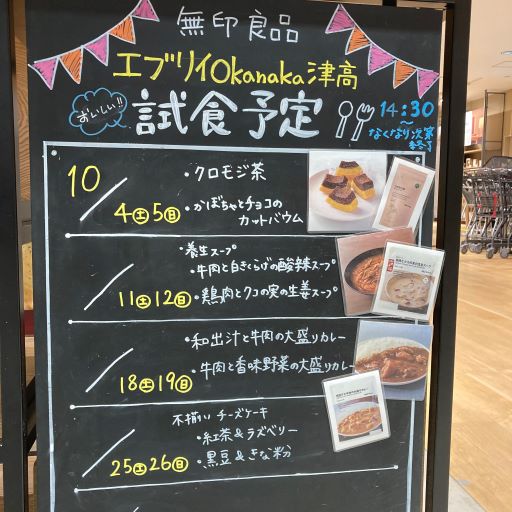 無印良品
エブリイOkanaka津高
おいしい!!
試食予定
14:30
～
なくなり次第
終了
10
4土5日
・クロモジ茶
・かぼちゃとチョコの
カットバウム
11土12日
・養生スープ
・牛肉と白きくらげの酸辣スープ
・鶏肉とクコの実の生姜スープ
18土19日
・和出汁と牛肉の大盛りカレー
・牛肉と香味野菜の大盛りカレー
25土26日
不揃い チーズケーキ
・紅茶&ラズベリー
・黒豆&きな粉